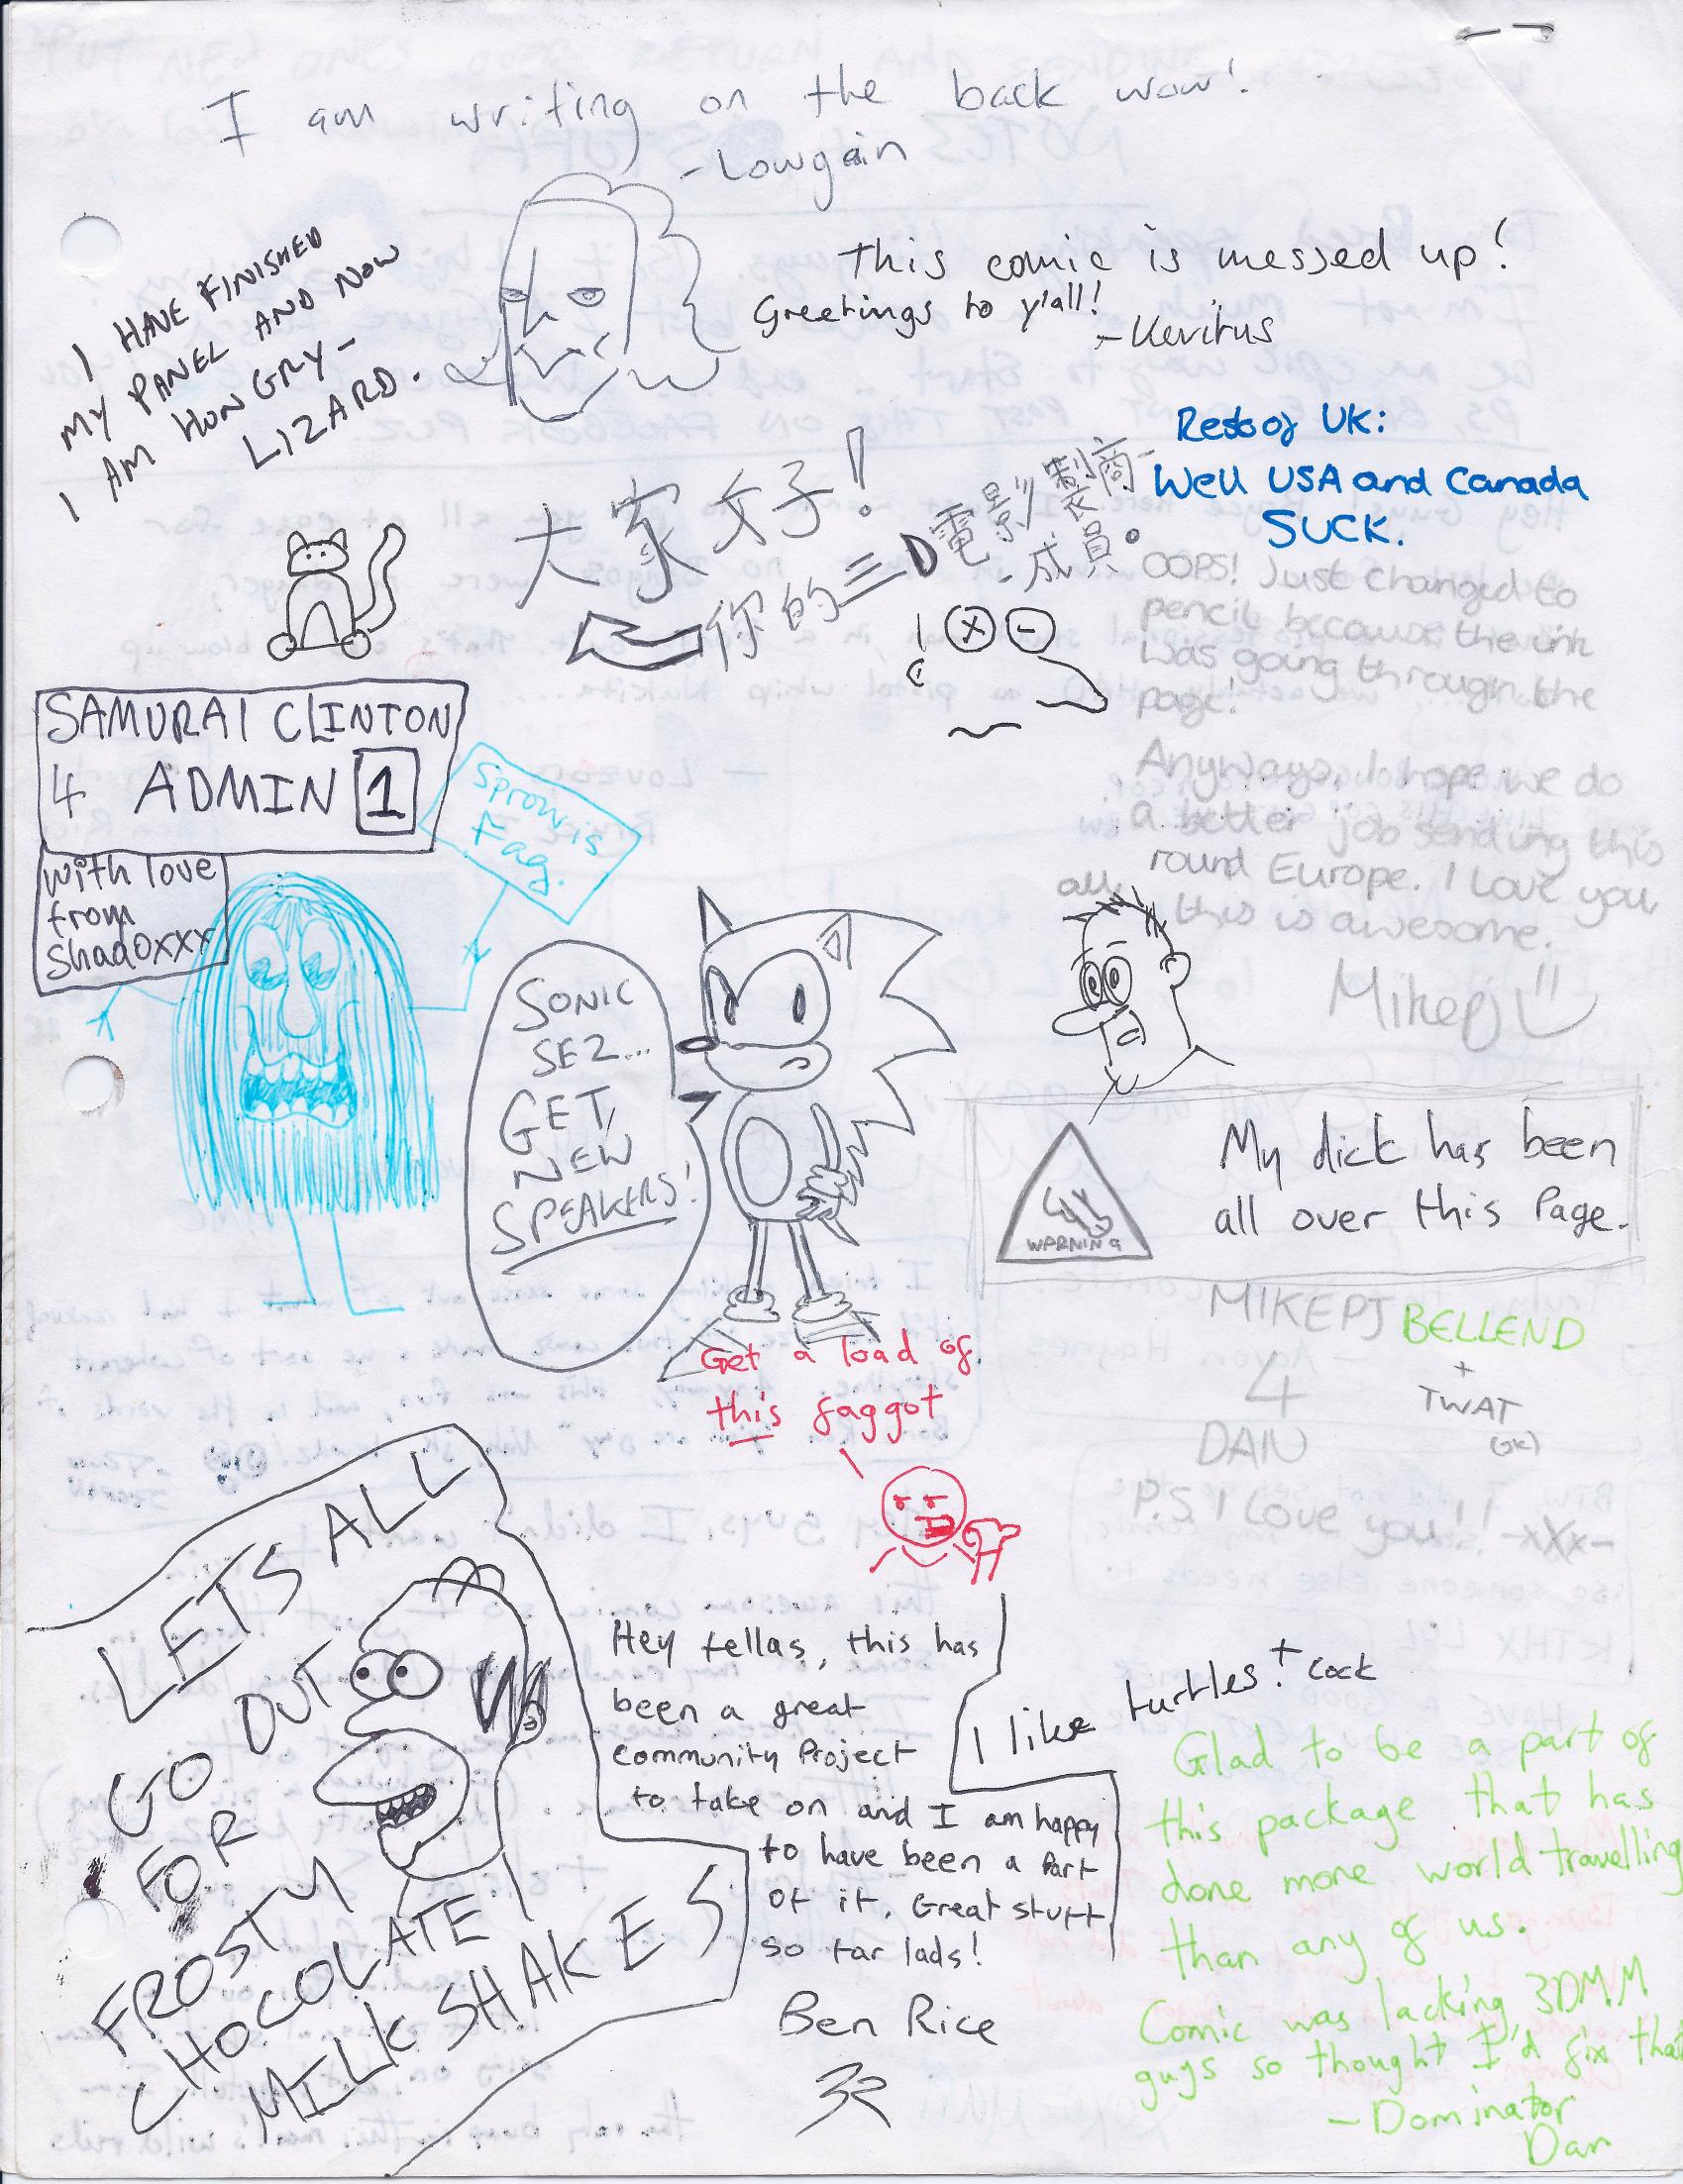 I am writing on the back wow!
-Lowgain
I HAVE FINISHED
MY PANEL AND NOW
I AM HUNGRY-
LIZARD.
This comic is messed up!
Greetings to y'all!
-Keviтus
Rest of UK:
Well USA and Canada
SUCK.
大家好!
你的三D電影製商-
-成員。
OOPS! Just changed to
pencil because the ink
was going through the
page!
Anyways, I hope we do
a better job sending this
round Europe. I Love you
all, this is awesome.
Mikepj
SAMURAI CLINTON
4 ADMIN 1
with love
from
shadoxxx
Sprow is
Fag.
SONIC
SEZ...
GET
NEW
SPEAKERS!
WARNING
My dick has been
all over this Page.
MIKEPJ BELLEND
4
+
TWAT
(JK)
DAN
P.S. I Love you!! -xXx-
Get a load of
this faggot
LETS ALL
GO OUT
FOR
FROSTY
CHOCOLATE
MILKSHAKES
Hey fellas, this has
been a great
community Project
to take on and I am happy
to have been a Part
of it. Great stuff
so far lads!
Ben Rice
I like turtles! + cock
Glad to be a part of
this package that has
done more world travelling
than any of us.
Comic was lacking 3DMM
guys so thought I'd fix that
-Dominator
Dan